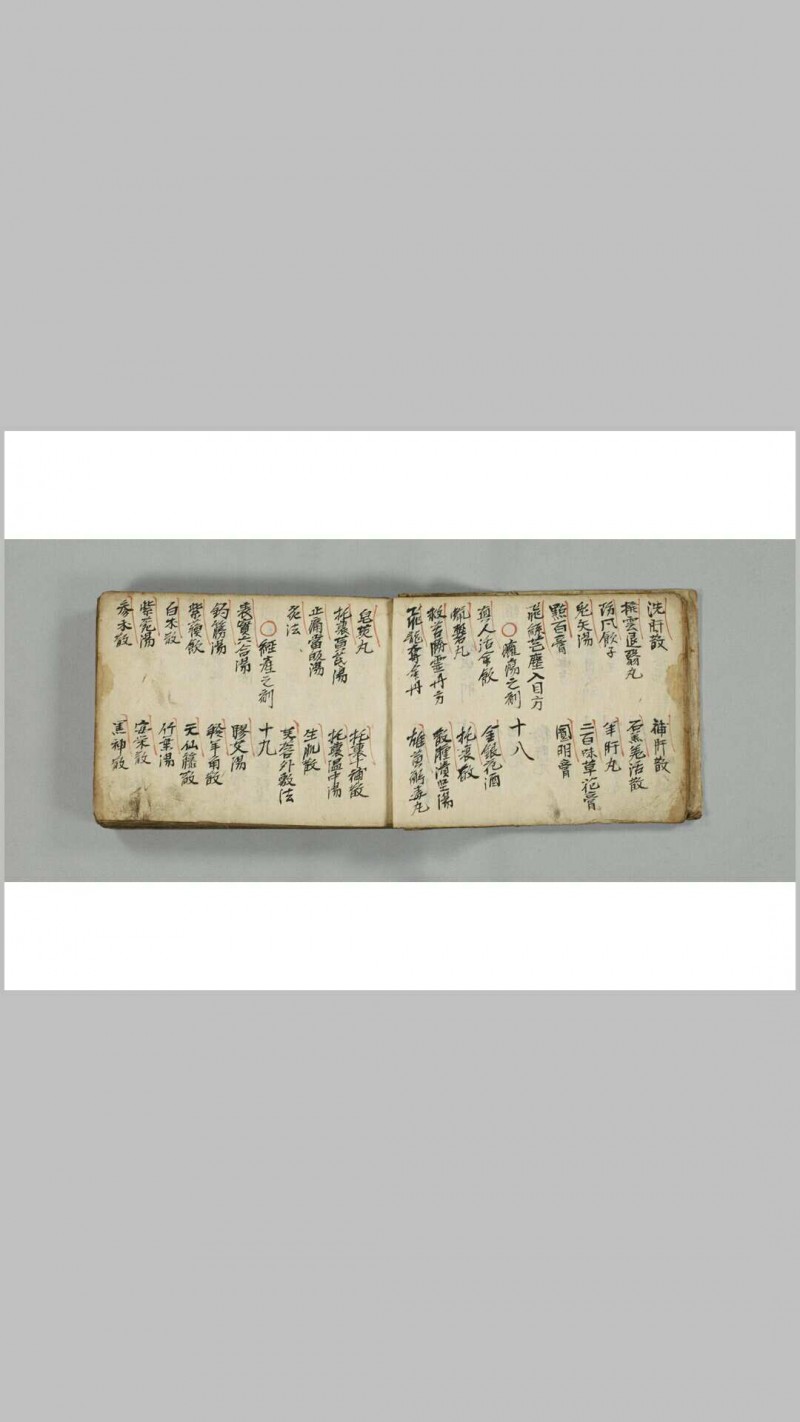 洗肝散 補肝散
撥雲退翳丸 石膏羌活散
防風飲子 羊肝丸
兔矢湯 二百味草花膏
點百膏 圓明膏
飛絲芒塵入目方
癰瘍之劑 十八
真人活命飲 金銀花酒
蠟礬丸 托裏散
救苦勝靈丹方 散腫潰堅湯
飛龍奪命丹 雄黃解毒丸
皂莢丸 托裏中補散
托裏黃芪湯 托裏溫中湯
止痛當歸湯 生肌散
灸法 芙蓉外敷法
經產之劑 十九
表實六合湯 膠艾湯
鈎藤湯 羚羊角散
紫梗飲 天仙藤散
白朮散 竹葉湯
紫菀湯 安榮散
參朮散 黑神散